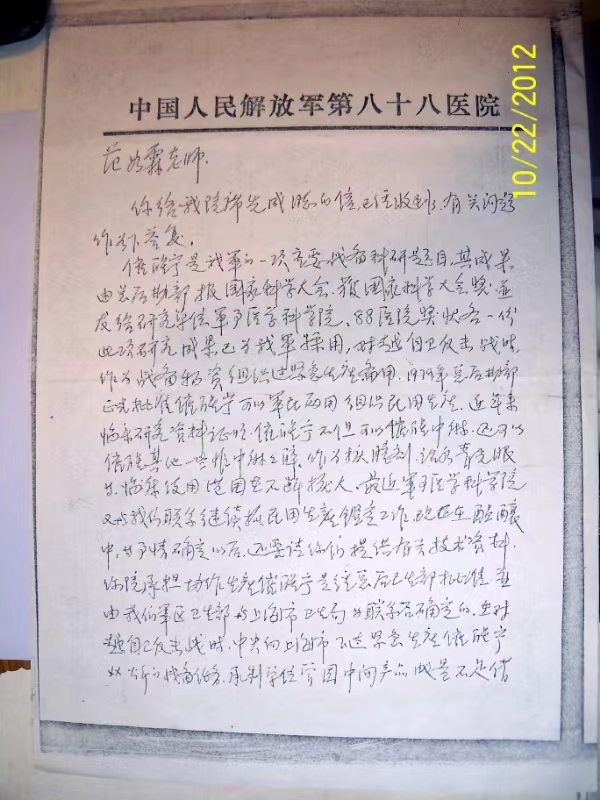 中国人民解放军第八十八医院
10/22/2012
范 霖老师.
你给我院 先成 的信,已经收到,有关问题
作如下答复.
催醒宁是我军的一项重要战备科研题目,其成果
由总后勤部报国家科学大会,获国家科学大会奖,并
发给研究单位军事医学科学院、88医院奖状各一份
此项研究成果已为我军采用,对越自卫反击战时,
作为战备物资组织过紧急生产备用.1979年总后勤部
正式批准催醒宁可以军民两用组织民用生产.近年来
临床研究资料证明:催醒宁不但可以催醒中麻,还可以
催醒其他一些非中麻 ,作为拮抗剂,治疗青光眼
等.临床使用范围在不断扩大.最近军事医学科学院
又与我们联系继续搞民用生产鉴定工作,现正在酝酿
中,如事情确定以后,还要请你们提供有关技术资料.
你院承担协作生产催醒宁是经总后卫生部批准,并
由我们军区卫生部与上海市卫生局 联系后确定的.在对
越自卫反击战时,中央向上海市下达紧急生产催醒宁
公斤的战备任务.承制单位曾因中间产品 是不是